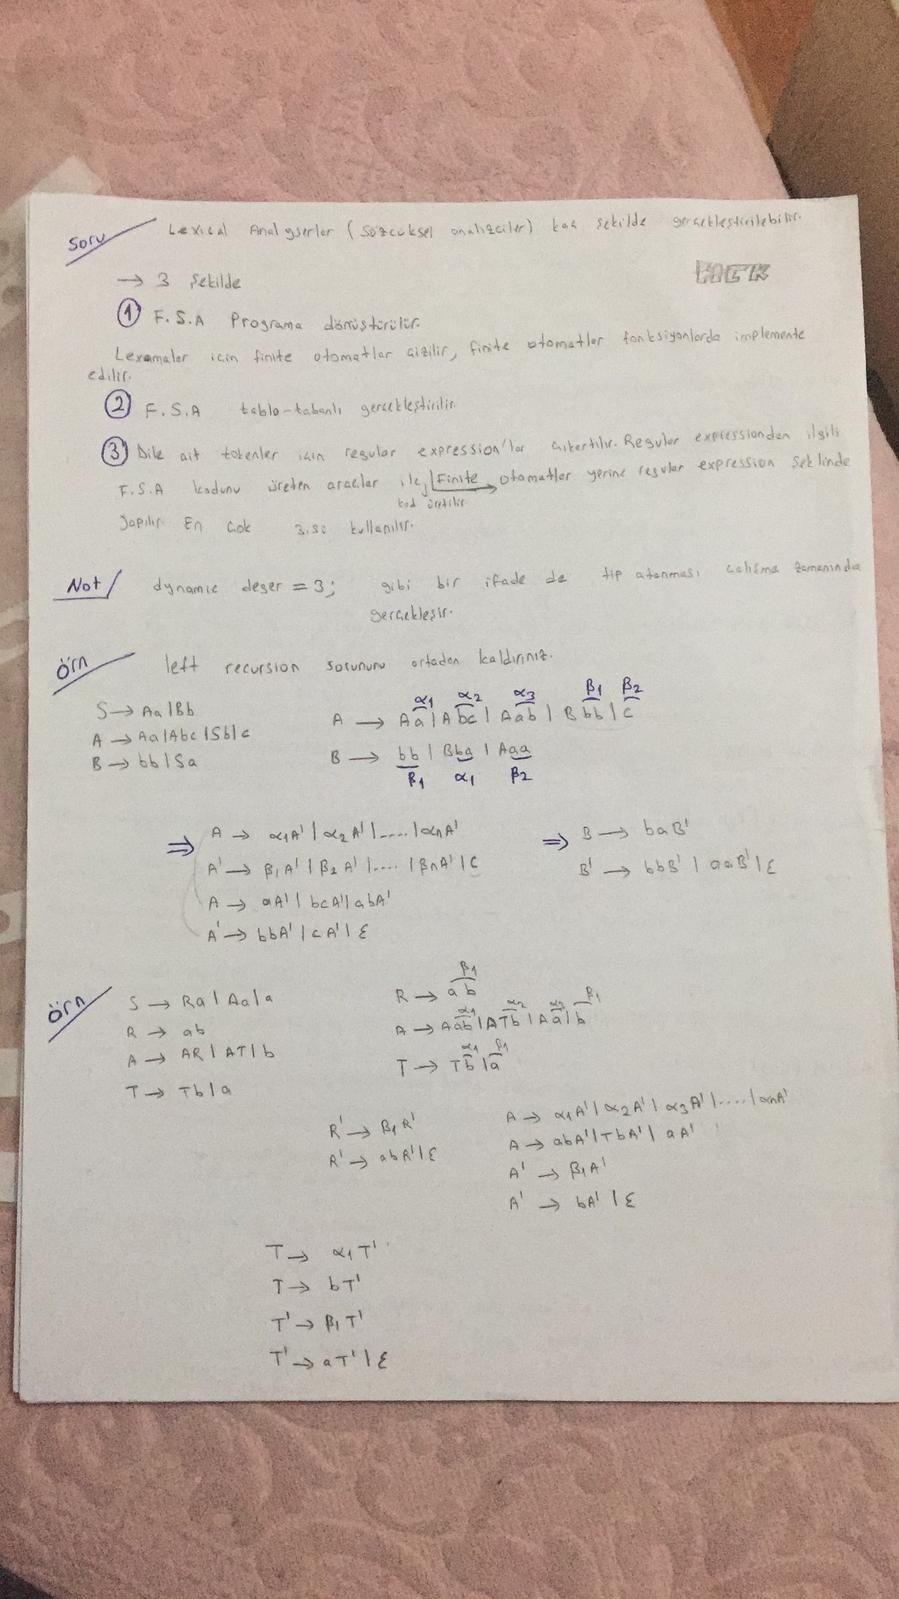 Soru Lexical Analyserler (Sözcüksel analizciler) kaç şekilde gerçekleştirilebilir.
→ 3 şekilde
① F.S.A Programa dönüştürülür.
Lexemaler için finite otomatlar çizilir, finite otomatlar fonksiyonlarda implemente
edilir.
② F.S.A tablo-tabanlı gerçekleştirilir.
③ Dile ait tokenler için regular expression'lar çıkartılır. Regular expressiondan ilgili
F.S.A kodunu üreten araçlar ile Finite otomatlar yerine regular expression şeklinde
kod üretilir
yapılır. En çok 3.sü kullanılır.
Not/ dynamic deger = 3; gibi bir ifade de tip atanması çalışma zamanında
gerçekleşir.
Örn left recursion sorununu ortadan kaldırınız.
α1 α2 α3 β1 β2
S → Aa|Bb A → Aa|Abc|Aab|Bbb|c
A → Aa|Abc|Sb|c
B → bb|Sa B → bb|Bba|Aaa
β1 α1 β2
⇒ A → α1A'|α2A'|....|αnA' ⇒ B → baB'
A' → β1A'|β2A'|....|βnA'|ε B' → bbB'|aaB'|ε
A → aA'|bcA'|abA'
A' → bbA'|cA'|ε
Örn S → Ra|Aa|a R → ab
β1
R → ab A → Aab|ATb|Aa|b
α1 α2 α3 β1
A → AR|AT|b T → Tb|a
α1 β1
T → Tb|a
R' → β1R' A → α1A'|α2A'|α3A'|....|αnA'
R' → abR'|ε A → abA'|TbA'|aA'
A' → β1A'
A' → bA'|ε
T → α1T'
T → bT'
T' → β1T'
T' → aT'|ε